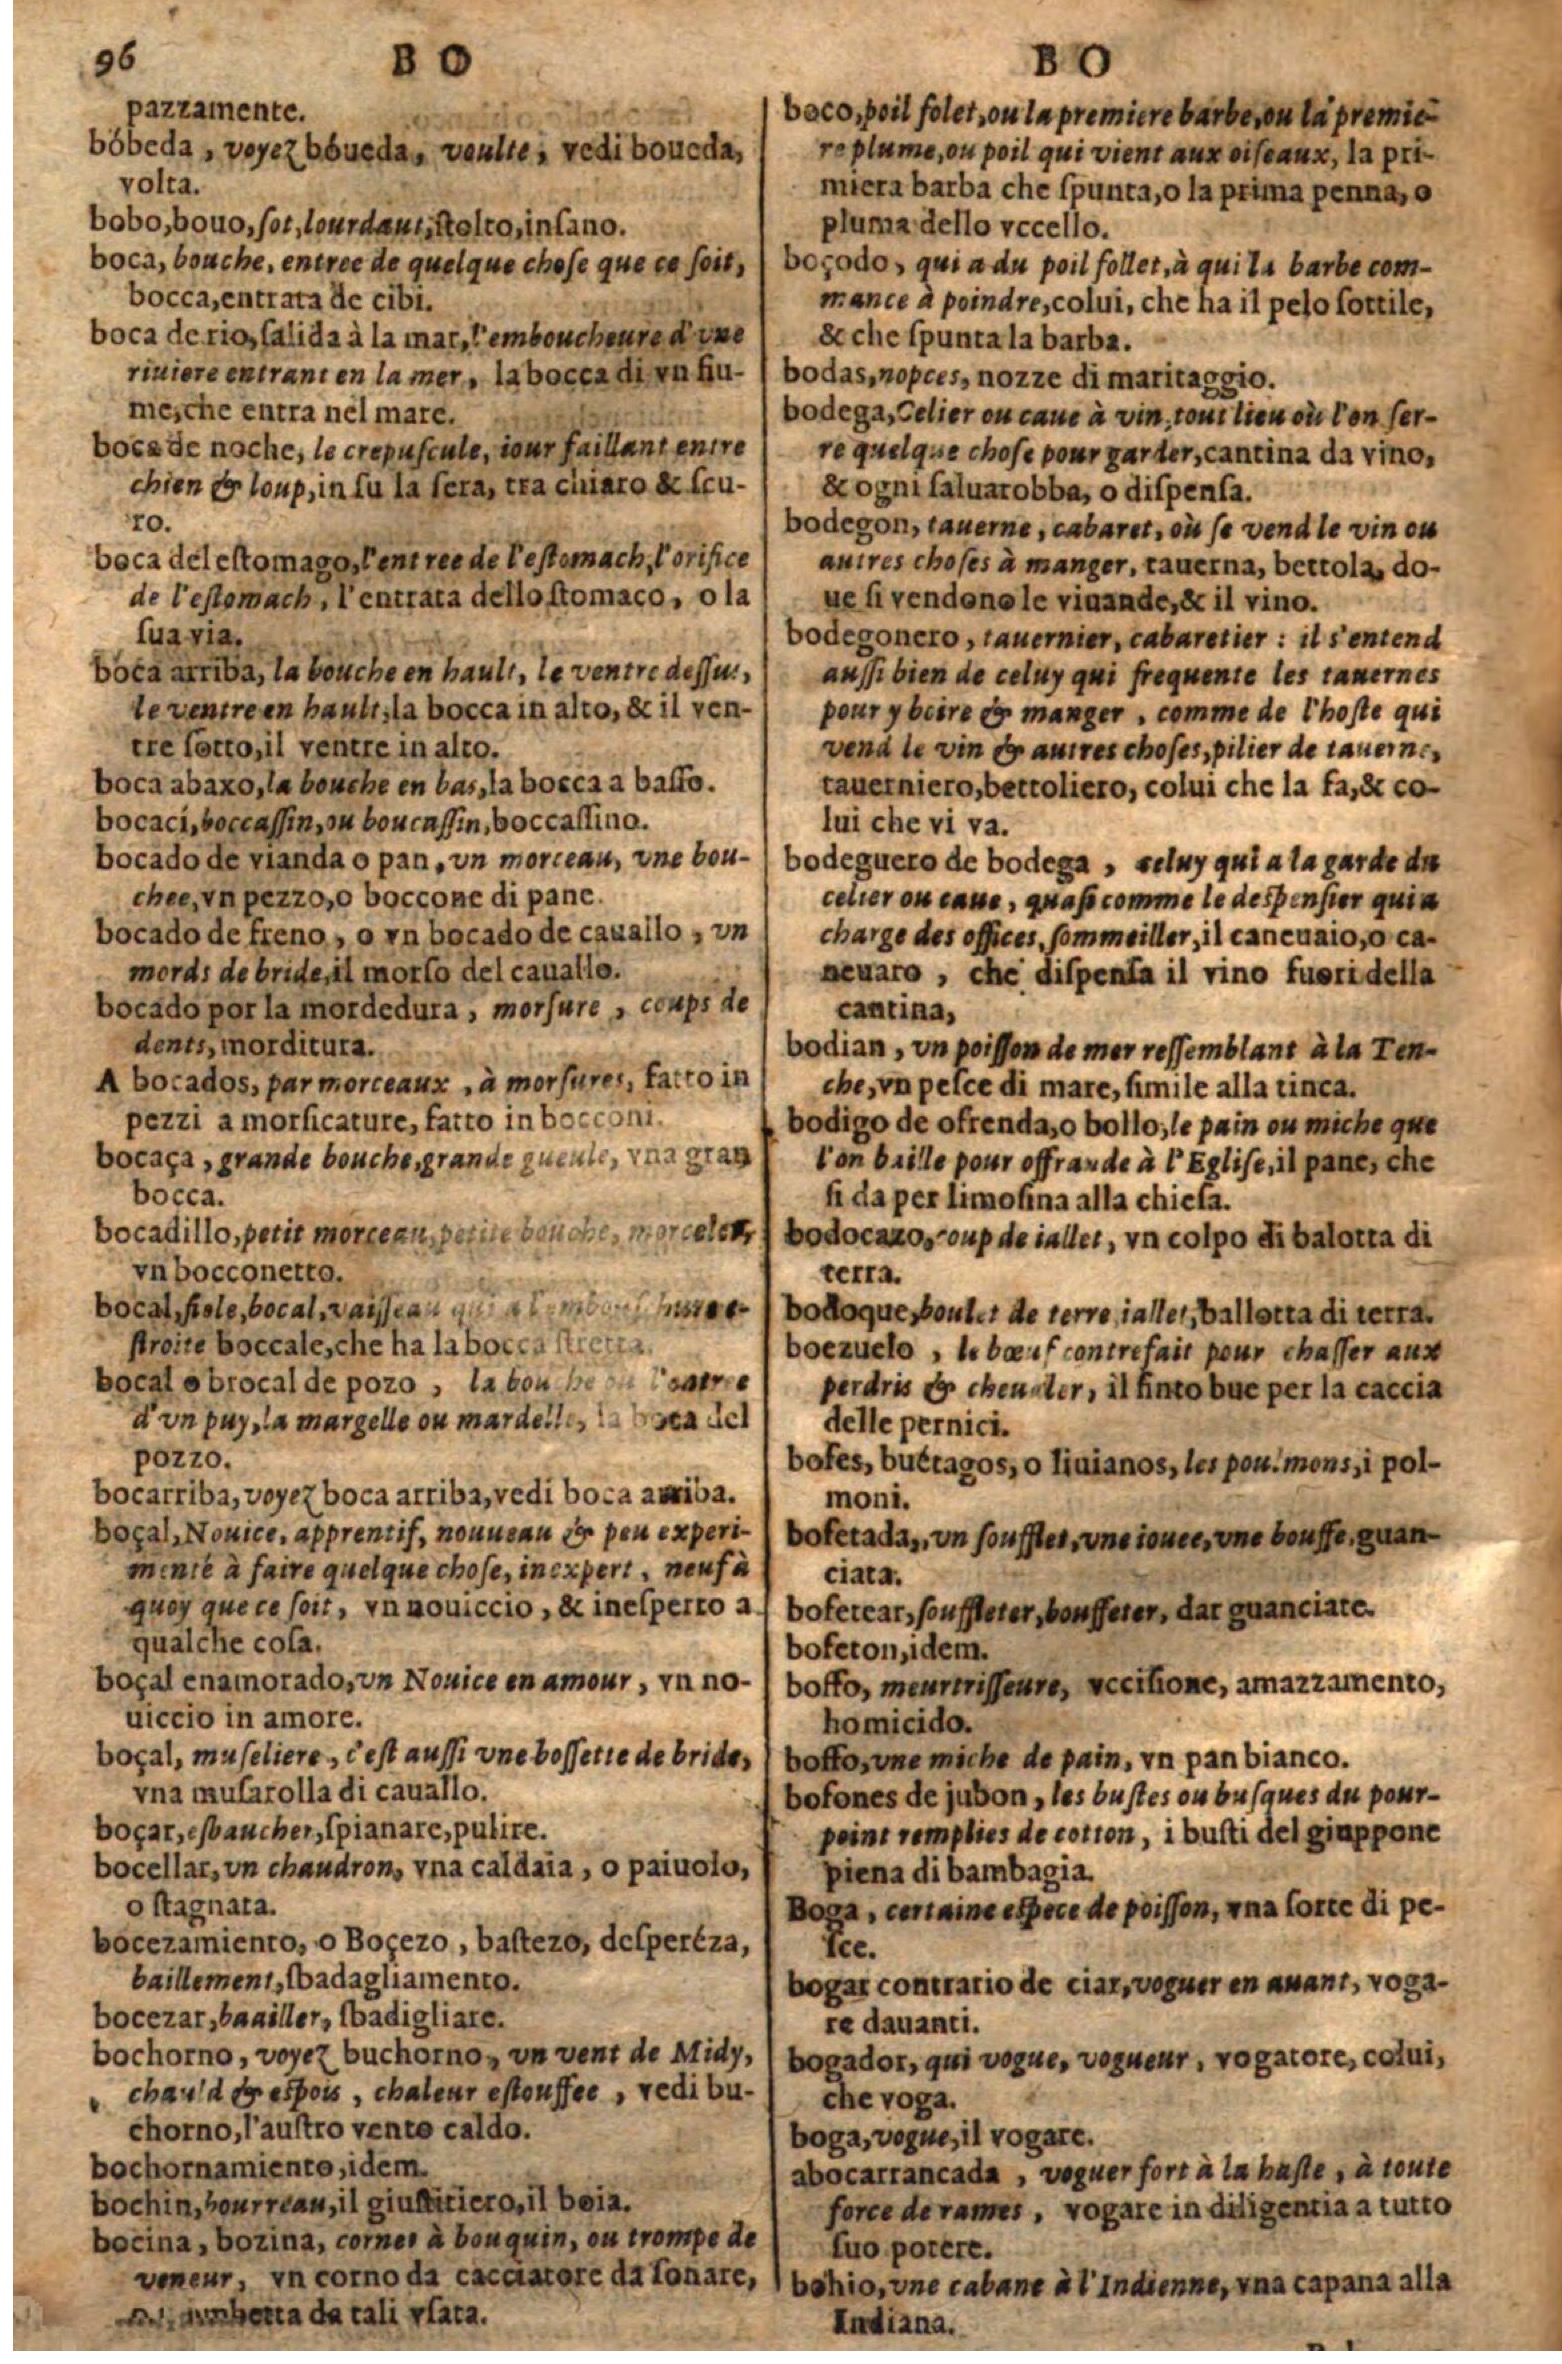 96 B O B O
pazzamente.
bóbeda, voyez bóueda, voulte, vedi boueda,
volta.
bobo, bouo, sot, lourdaut, stolto, insano.
boca, bouche, entree de quelque chose que ce soit,
bocca, entrata de cibi.
boca de rio, salida à la mar, l'emboucheure d'vne
riuiere entrant en la mer, la bocca di vn fiu-
me, che entra nel mare.
boca de noche, le crepuscule, iour faillant entre
chien & loup, in su la sera, tra chiaro & scu-
ro.
boca del estomago, l'entree de l'estomach, l'orifice
de l'estomach, l'entrata dello stomaco, o la
sua via.
boca arriba, la bouche en hault, le ventre dessus,
le ventre en hault, la bocca in alto, & il ven-
tre sotto, il ventre in alto.
boca abaxo, la bouche en bas, la bocca a basso.
bocací, boccassin, ou boucassin, boccassino.
bocado de vianda o pan, vn morceau, vne bou-
chee, vn pezzo, o boccone di pane.
bocado de freno, o vn bocado de cauallo, vn
mords de bride, il morso del cauallo.
bocado por la mordedura, morsure, coups de
dents, morditura.
A bocados, par morceaux, à morsures, fatto in
pezzi a morsicature, fatto in bocconi.
bocaça, grande bouche, grande gueule, vna gran
bocca.
bocadillo, petit morceau, petite bouche, morcelet,
vn bocconetto.
bocal, fiole, bocal, vaisseau qui a l'embouchure e-
stroite boccale, che ha la bocca stretta.
bocal o brocal de pozo, la bouche ou l'entree
d'vn puy, la margelle ou mardelle, la boca del
pozzo.
bocarriba, voyez boca arriba, vedi boca arriba.
boçal, Nouice, apprentif, nouueau & peu experi-
menté à faire quelque chose, inexpert, neuf à
quoy que ce soit, vn nouiccio, & inesperto a
qualche cosa.
boçal enamorado, vn Nouice en amour, vn no-
uiccio in amore.
boçal, museliere, c'est aussi vne bossette de bride,
vna musarolla di cauallo.
boçar, esbaucher, spianare, pulire.
bocellar, vn chaudron, vna caldaia, o paiuolo,
o stagnata.
bocezamiento, o Boçezo, bastezo, desperéza,
baillement, sbadagliamento.
bocezar, baailler, sbadigliare.
bochorno, voyez buchorno, vn vent de Midy,
chauld & espois, chaleur estouffee, vedi bu-
chorno, l'austro vento caldo.
bochornamiento, idem.
bochin, bourreau, il giustitiero, il boia.
bocina, bozina, cornet à bouquin, ou trompe de
veneur, vn corno da cacciatore da sonare,
da tali vsata.
boco, poil folet, ou la premiere barbe, ou la premie-
re plume, ou poil qui vient aux oiseaux, la pri-
miera barba che spunta, o la prima penna, o
pluma dello vccello.
boçodo, qui a du poil follet, à qui la barbe com-
mance à poindre, colui, che ha il pelo sottile,
& che spunta la barba.
bodas, nopces, nozze di maritaggio.
bodega, Celier ou caue à vin, tout lieu où l'on ser-
re quelque chose pour garder, cantina da vino,
& ogni saluarobba, o dispensa.
bodegon, tauerne, cabaret, où se vend le vin ou
autres choses à manger, tauerna, bettola, do-
ue si vendono le viuande, & il vino.
bodegonero, tauernier, cabaretier : il s'entend
aussi bien de celuy qui frequente les tauernes
pour y boire & manger, comme de l'hoste qui
vend le vin & autres choses, pilier de tauerne,
tauerniero, bettoliero, colui che la fa, & co-
lui che vi va.
bodeguero de bodega, celuy qui a la garde du
celier ou caue, quasi comme le despensier qui a
charge des offices, sommeiller, il caneuaio, o ca-
neuaro, che dispensa il vino fuori della
cantina,
bodian, vn poisson de mer ressemblant à la Ten-
che, vn pesce di mare, simile alla tinca.
bodigo de ofrenda, o bollo, le pain ou miche que
l'on baille pour offrande à l'Eglise, il pane, che
si da per limosina alla chiesa.
bodocazo, coup de iallet, vn colpo di balotta di
terra.
bodoque, boulet de terre, iallet, ballotta di terra.
boezuelo, le bœuf contrefait pour chasser aux
perdris & cheualer, il finto bue per la caccia
delle pernici.
bofes, buétagos, o liuianos, les poulmons, i pol-
moni.
bofetada,, vn soufflet, vne iouee, vne bouffe, guan-
ciata.
bofetear, souffleter, bouffeter, dar guanciate.
bofeton, idem.
boffo, meurtrisseure, vccisione, amazzamento,
homicido.
boffo, vne miche de pain, vn pan bianco.
bofones de jubon, les bustes ou busques du pour-
point remplies de cotton, i busti del giuppone
piena di bambagia.
Boga, certaine espece de poisson, vna sorte di pe-
sce.
bogar contrario de ciar, voguer en auant, voga-
re dauanti.
bogador, qui vogue, vogueur, vogatore, colui,
che voga.
boga, vogue, il vogare.
abocarrancada, voguer fort à la haste, à toute
force de rames, vogare in diligentia a tutto
suo potere.
bohio, vne cabane à l'Indienne, vna capana alla
Indiana.